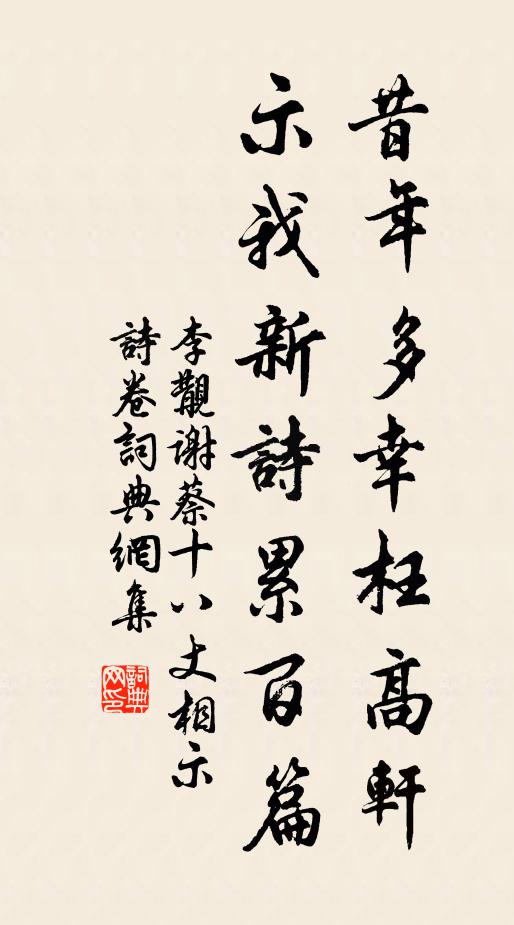 昔年多幸枉高軒
示我新詩累百篇
李覯謝蔡十八丈相示
詩卷詞典網集
詞典网印